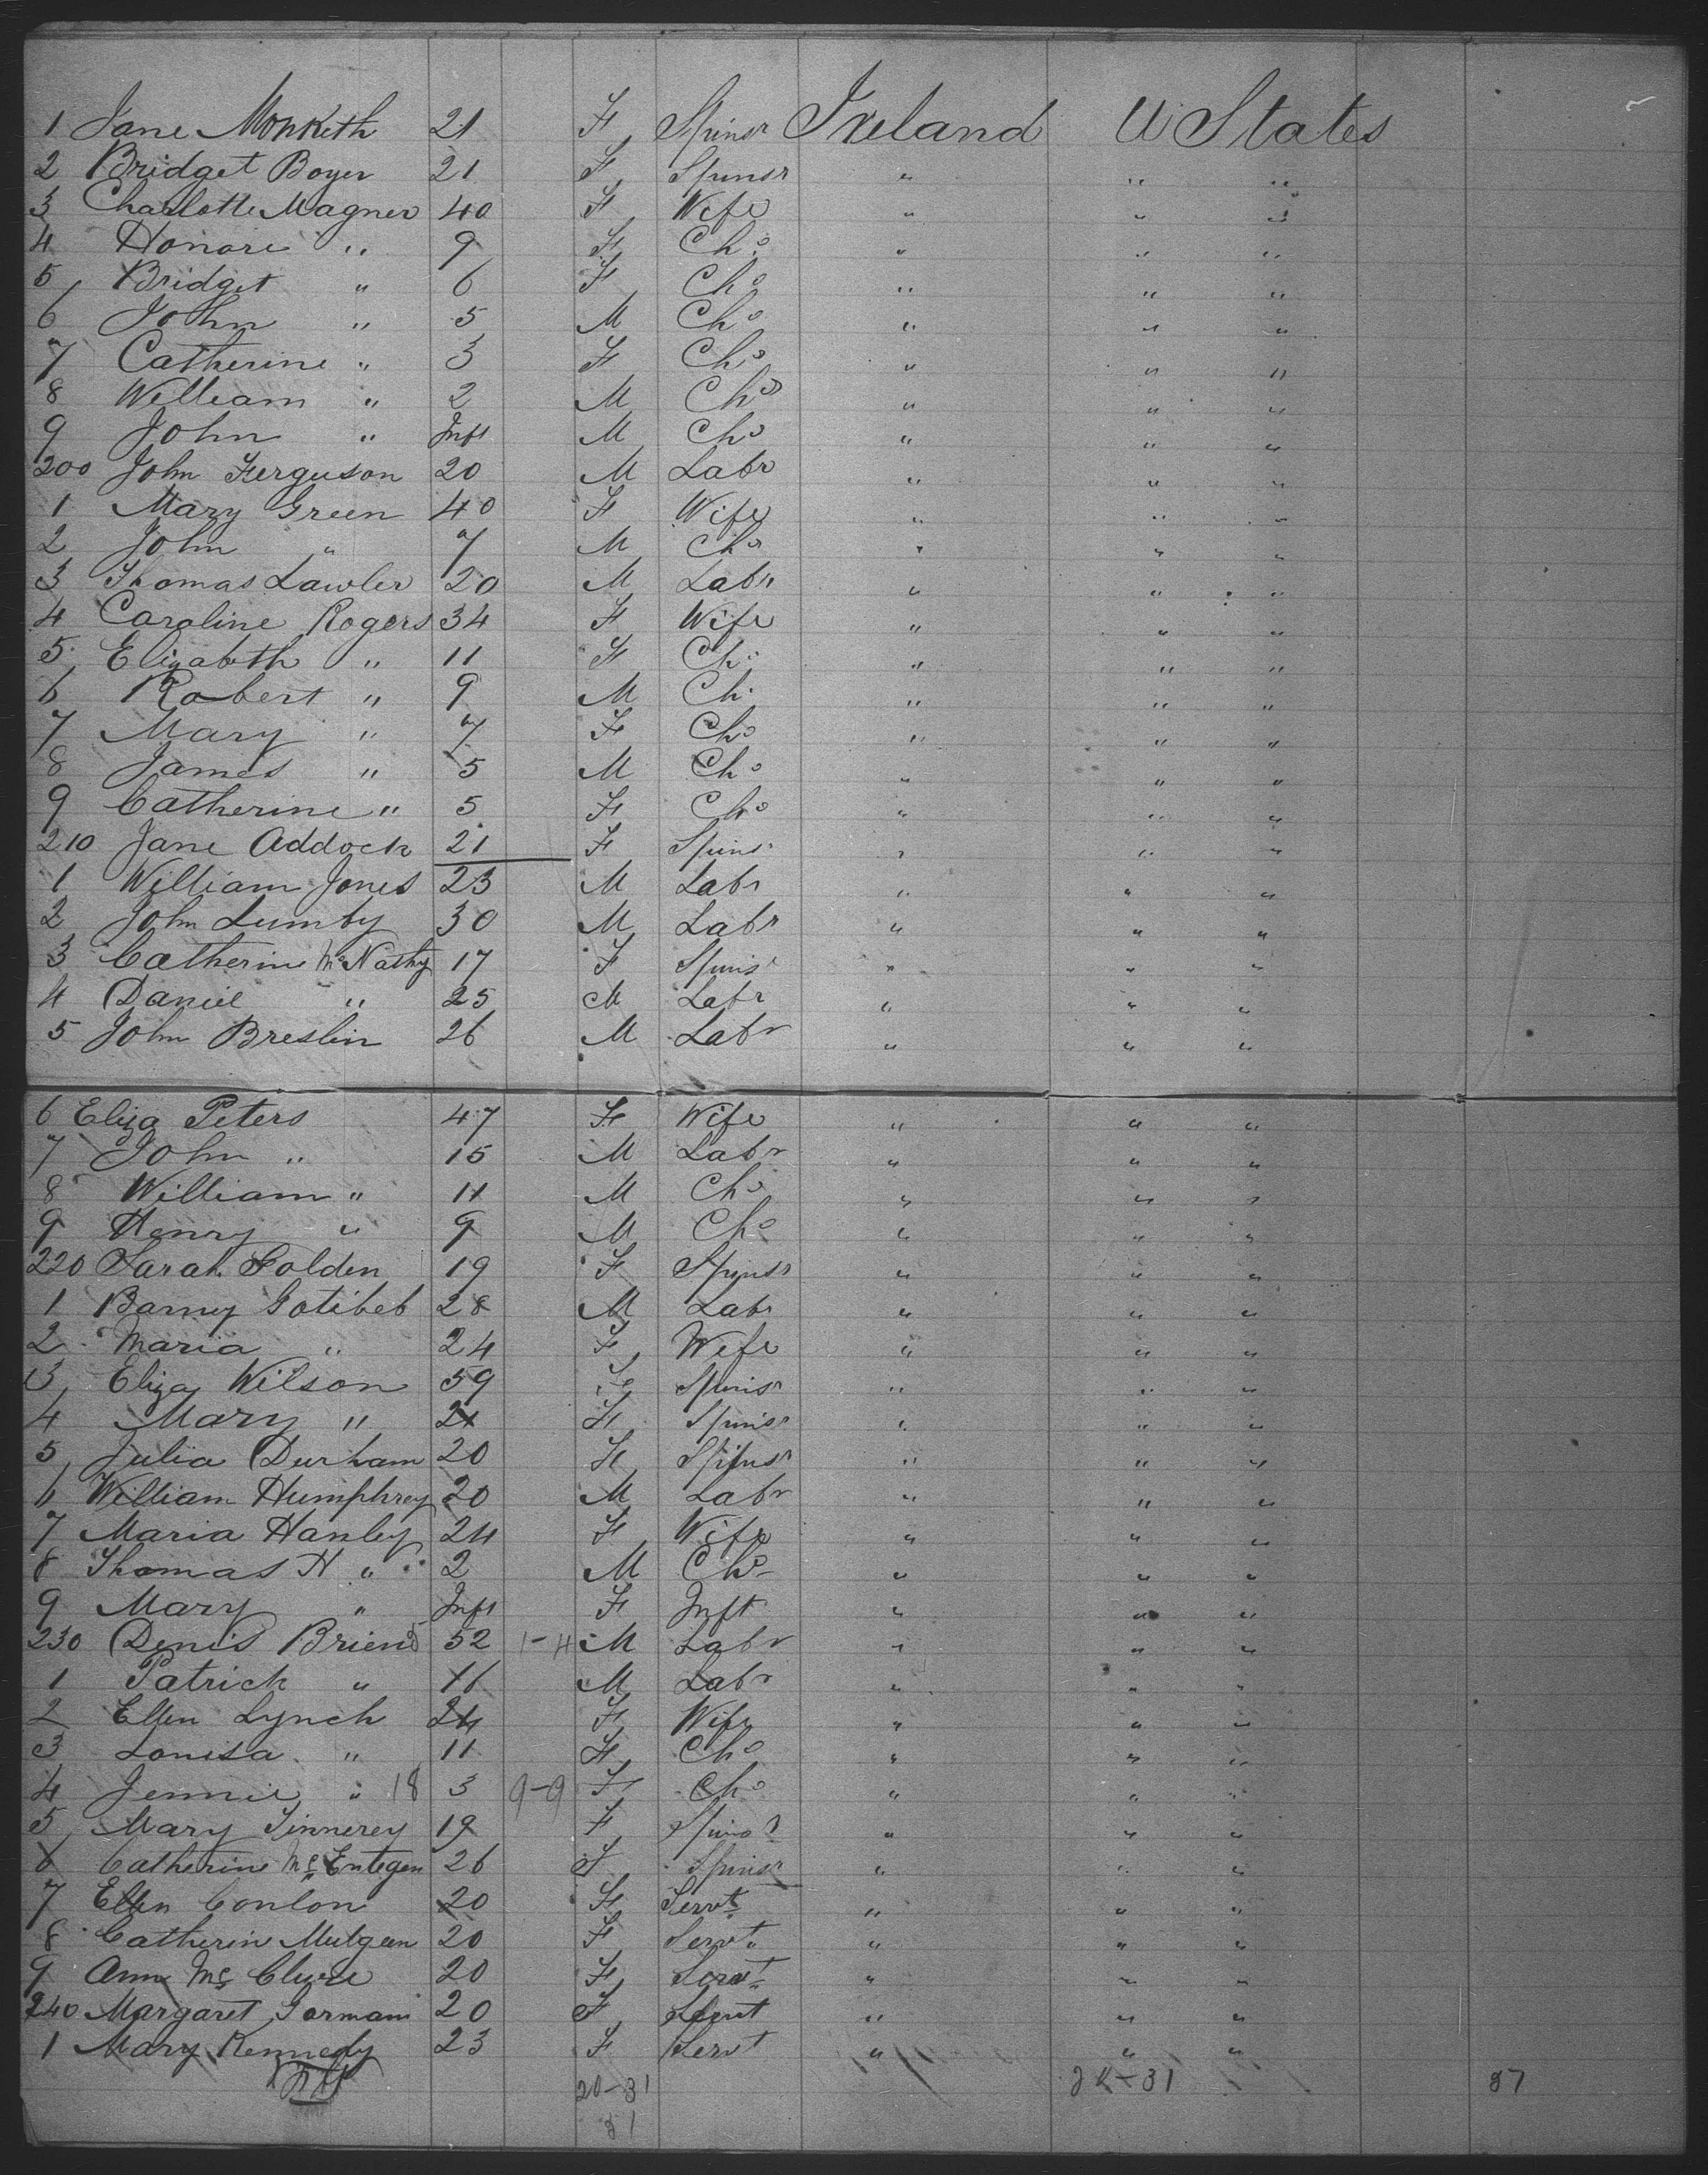 1 Jane Monkith 21 F Spinsr Ireland U States
2 Bridget Boyer 21 F Spinsr " " "
3 Charlotte Magner 40 F Wife " " "
4 Honore " 9 F Ch " " "
5 Bridget " 6 F Ch " " "
6 John " 5 M Ch " " "
7 Catherine " 3 F Ch " " "
8 William " 2 M Ch " " "
9 John " Inft M Ch " " "
200 John Ferguson 20 M Labr " " "
1 Mary Green 40 F Wife " " "
2 John " 7 M Ch " " "
3 Thomas Lawler 20 M Labr " " "
4 Caroline Rogers 34 F Wife " " "
5 Elizabeth " 11 F Ch " " "
6 Robert " 9 M Ch " " "
7 Mary " 7 F Ch " " "
8 James " 5 M Ch " " "
9 Catherine " 5 F Ch " " "
210 Jane Addock 21 F Spins " " "
1 William Jones 23 M Labr " " "
2 John Lumby 30 M Labr " " "
3 Catherine Mc Nathy 17 F Spins " " "
4 Daniel " 25 M Labr " " "
5 John Breslin 26 M Labr " " "
6 Eliza Peters 47 F Wife " " "
7 John " 15 M Labr " " "
8 William " 11 M Ch " " "
9 Henry " 9 M Ch " " "
220 Sarah Golden 19 F Spinsr " " "
1 Barney Gotibeb 28 M Labr " " "
2 Maria " 24 F Wife " " "
3 Eliza Wilson 59 F Spinsr " " "
4 Mary " 21 F Spinsr " " "
5 Julia Durham 20 F Spinsr " " "
6 William Humphrey 20 M Labr " " "
7 Maria Hanley 24 F Wife " " "
8 Thomas H " 2 M Ch " " "
9 Mary " Inft F Inft " " "
230 Denis Brien 52 1-4 M Labr " " "
1 Patrick " 16 M Labr " " "
2 Ellen Lynch 24 F Wife " " "
3 Louisa " 11 F Ch " " "
4 Jennie " 18 3 9-9 F Ch " " "
5 Mary Tinnerey 19 F Spinsr " " "
6 Catherine Mc Entegen 26 F Spinsr " " "
7 Ellen Conlon 20 F Servt " " "
8 Catherin Mulgeen 20 F Servt " " "
9 Ann Mc Clure 20 F Servt " " "
240 Margaret Gormani 20 F Servt " " "
1 Mary Kennedy 23 F Servt " " "
20-31 -31 87